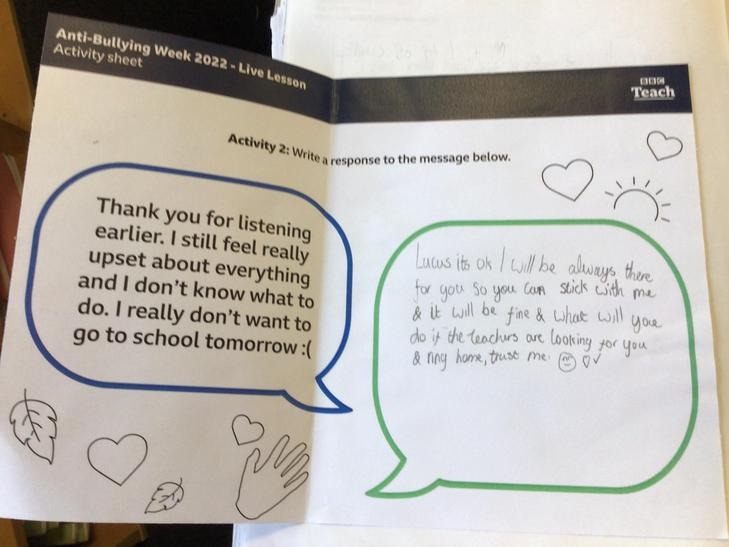 Anti-Bullying Week 2022 - Live Lesson
Activity sheet
BBC
Teach
Activity 2: Write a response to the message below.
Thank you for listening
earlier. I still feel really
upset about everything
and I don't know what to
do. I really don't want to
go to school tomorrow :(
Lucus its ok I will be always there
for you so you can stick with me
& it will be fine & what will you
do if the teachers are looking for you
& ring home, trust me.